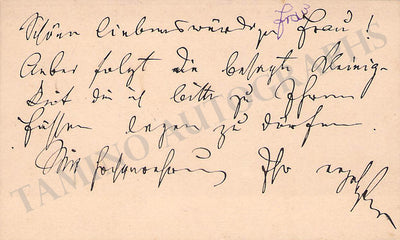 Frau
Schöne liebenswürdige Frau!
Anbei folgt die besagte Kleinig-
keit die ich bitte zu Ihren
Füssen legen zu dürfen.
Mit Hochverehrung Ihr
TAMINO AUTOGRAPHS